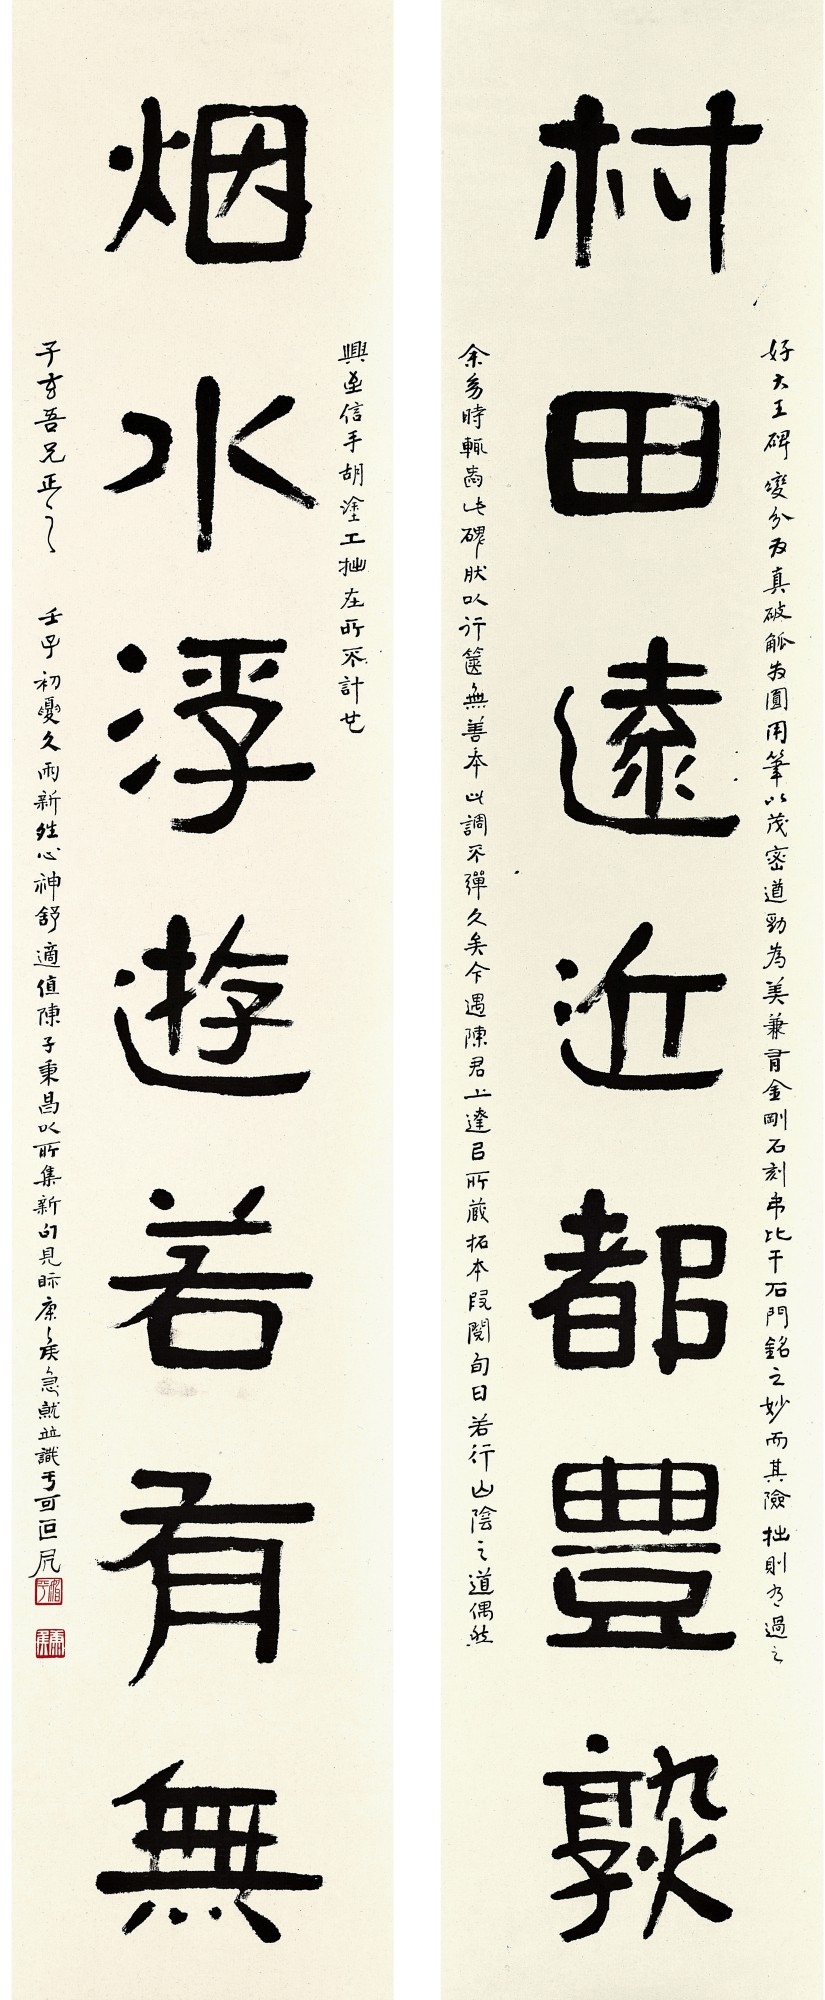 村田遠近都豊孰
好大王碑變分為真破觚為圓用筆以茂密遒勁為美兼有金剛石刻弔比干石門銘之妙而其險拙則有過之
余舄時輒嵩此碑肰以行篋無善本此調不彈久矣今遇陳君上達已所蔵拓本叚閱旬日若行山陰之道偶然
烟水浮遊若有無
興至信手胡塗工拙在所不計也
子玄吾兄正之
壬子初夏久雨新晴心神舒適值陳子秉昌以所集新句見眎康矦急就並識于可叵凥